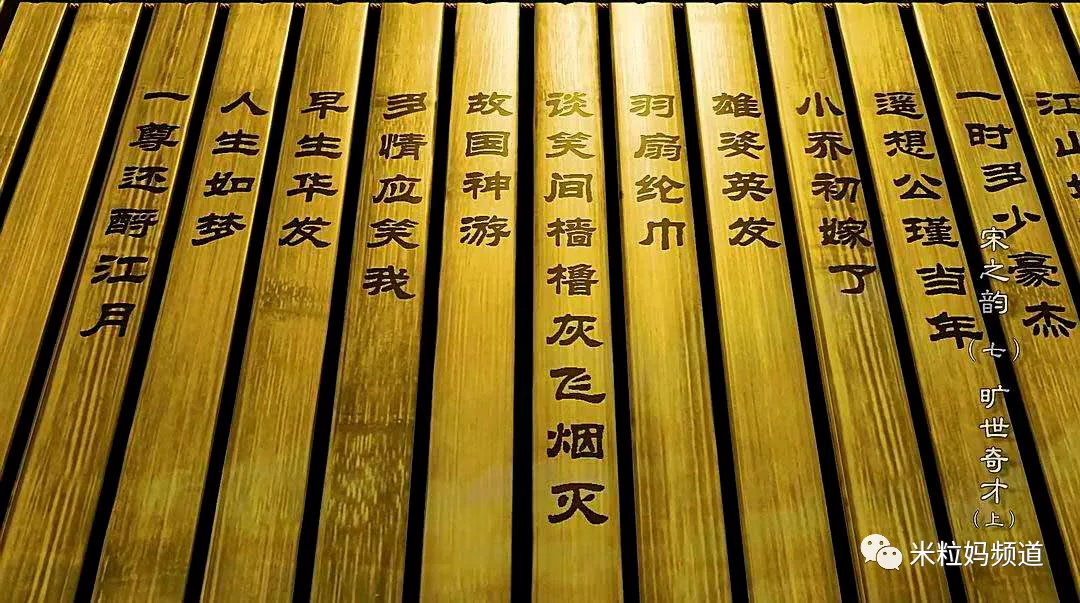 江山
一时多少豪杰
遥想公瑾当年
小乔初嫁了
雄姿英发
羽扇纶巾
谈笑间樯橹灰飞烟灭
故国神游
多情应笑我
早生华发
人生如梦
一尊还酹江月
宋之韵（七）旷世奇才（上）
米粒妈频道